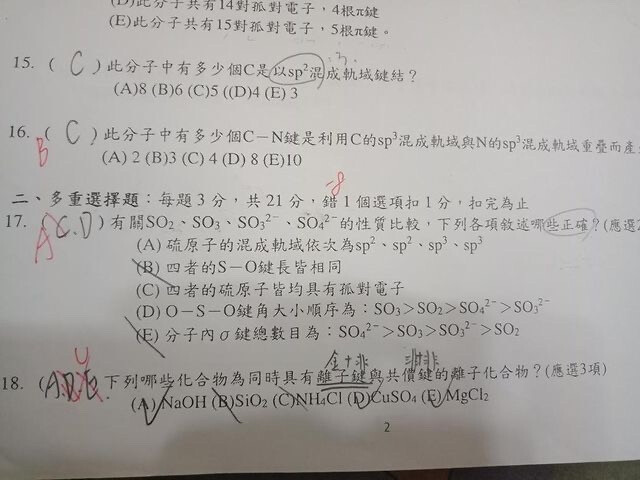 (D)此分子共有14對孤對電子，4根π鍵
(E)此分子共有15對孤對電子，5根π鍵。
15. ( C )此分子中有多少個C是以sp²混成軌域鍵結？
(A)8 (B)6 (C)5 ((D)4 (E) 3
16. ( C )此分子中有多少個C－N鍵是利用C的sp³混成軌域與N的sp³混成軌域重疊而產
B
(A) 2 (B)3 (C) 4 (D) 8 (E)10
-8
二、多重選擇題：每題 3 分，共 21 分，錯 1 個選項扣 1 分，扣完為止
17. ( C.D )有關SO₂、SO₃、SO₃²⁻、SO₄²⁻的性質比較，下列各項敘述哪些正確？(應選2
A
(A) 硫原子的混成軌域依次為sp²、sp²、sp³、sp³
(B) 四者的S－O鍵長皆相同
(C) 四者的硫原子皆均具有孤對電子
(D) O－S－O鍵角大小順序為：SO₃＞SO₂＞SO₄²⁻＞SO₃²⁻
(E) 分子內σ鍵總數目為：SO₄²⁻＞SO₃＞SO₃²⁻＞SO₂
金+非 非非
18. (A.D.E.下列哪些化合物為同時具有離子鍵與共價鍵的離子化合物？(應選3項)
(A) NaOH (B)SiO₂ (C)NH₄Cl (D)CuSO₄ (E) MgCl₂
2